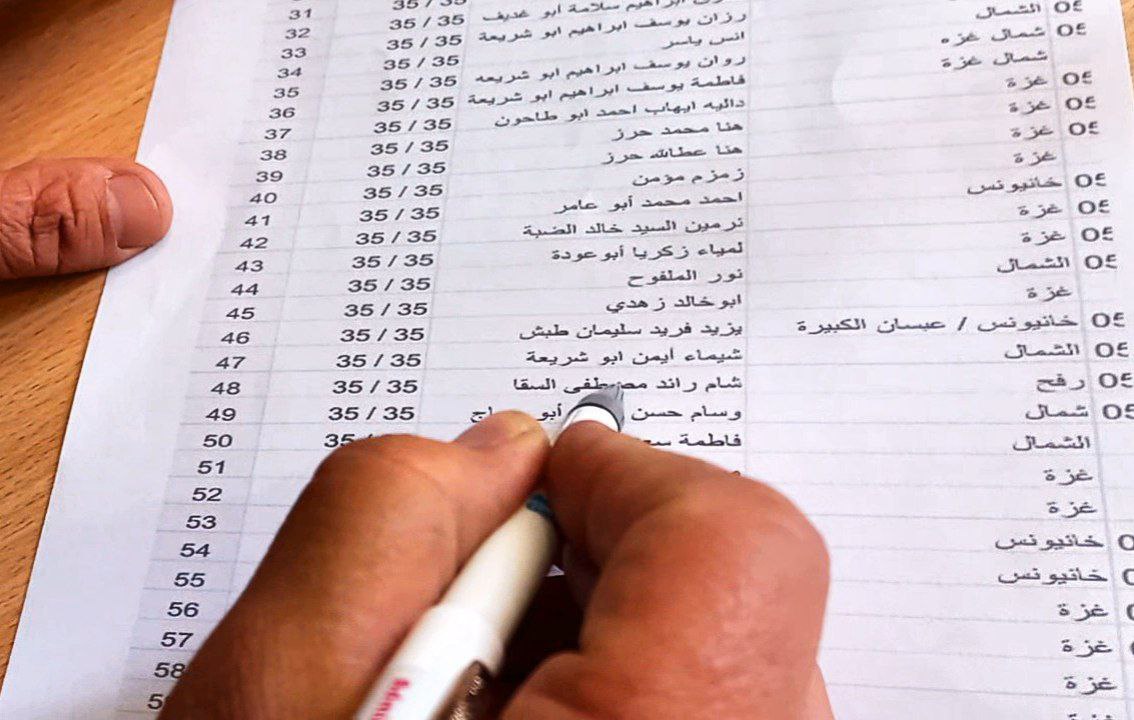 31 35 / 35
32 35 / 35 ابراهيم سلامة ابو غديف
33 35 / 35 رزان يوسف ابراهيم ابو شريعة
34 35 / 35 انس ياسر الشمال
35 35 / 35 روان يوسف ابراهيم ابو شريعه شمال غزه
36 35 / 35 فاطمة يوسف ابراهيم ابو شريعة شمال غزة
37 35 / 35 داليه ايهاب احمد ابو طاحون غزة
38 35 / 35 هنا محمد حرز غزة
39 35 / 35 هنا عطالله حرز غزة
40 35 / 35 زمزم مؤمن غزة
41 35 / 35 احمد محمد أبو عامر خانيونس
42 35 / 35 نرمين السيد خالد الضبة غزة
43 35 / 35 لمياء زكريا أبو عودة غزة
44 35 / 35 نور الملفوح الشمال
45 35 / 35 ابو خالد زهدي غزة
46 35 / 35 يزيد فريد سليمان طبش خانيونس / عبسان الكبيرة
47 35 / 35 شيماء أيمن ابو شريعة الشمال
48 35 / 35 شام رائد مصطفى السقا رفح
49 35 / 35 وسام حسن أبو شمال
50 35 فاطمة الشمال
51 غزة
52 غزة
53 خانيونس
54 خانيونس
55 غزة
56 غزة
57 غزة
58